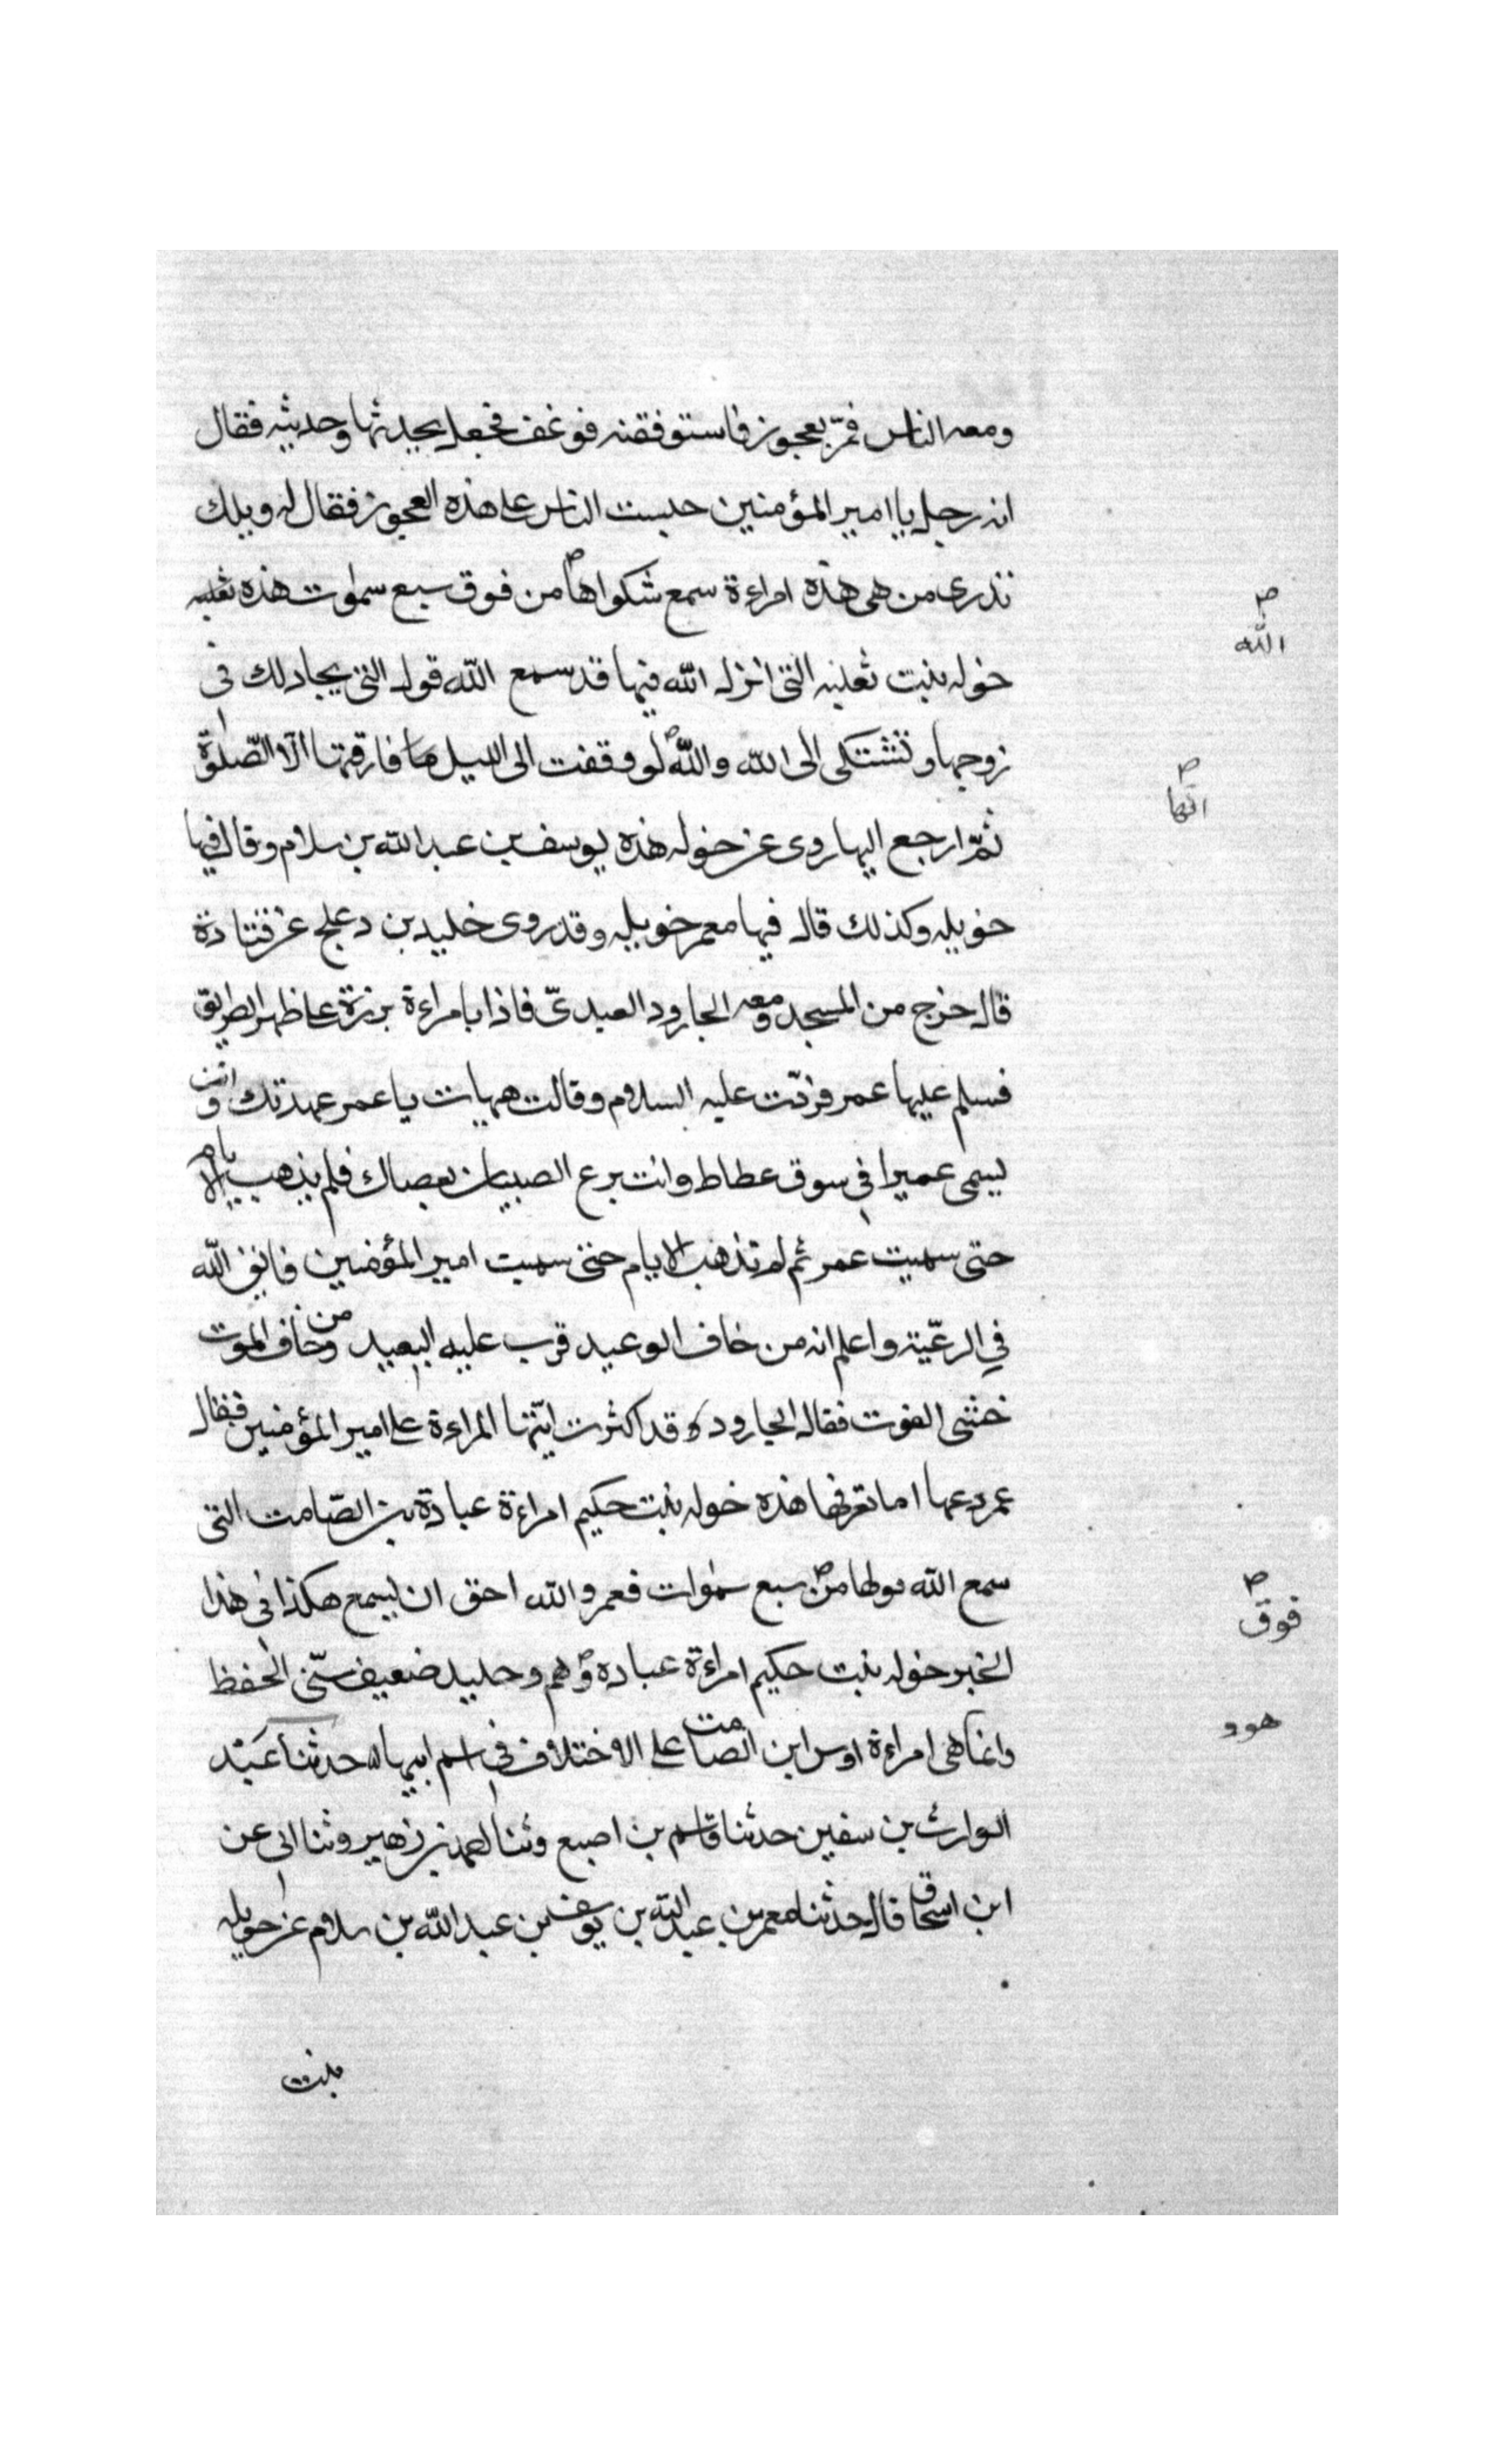 ومعه الناس فمرّ بعجوز فاستوفقنه فوغف فجعل يحدثها وحديثه فقال
انه رجل يا امير المؤمنين حبست الناس على هذه العجوز فقال له ويلك
تدرى من هى هذه امراءة سمع شكواها من فوق سبع سموات هذه ثعلبه
الله
خوله بنبت ثعلبه التى انزل الله فيها قد سمع الله قول التى يجادلك فى
زوجها وتشتكى الى الله والله لو وقفت الى الليل ما فارقتها الّا الصّلوة
انها
ثمّ ارجع اليها روى عن خوله هذه يوسف بن عبد الله بن سلام وقال فيها
خويله وكذلك قال فيها معمر خويله وقد روى خليد بن دعلج عن قتادة
قال خرج من المسجد ومعه الجارود العبدىّ فاذا بامراءة برزة على ظهر الطريق
فسلم عليها عمر فردّت عليه السلام وقالت هيهات يا عمر عهدتك وانت
يسمى عميرا فى سوق عطاط وانت برع الصبيان بعصاك فلم يذهب الايام
حتى سميت عمر ثم لم تذهب الايام حتى سميت امير المؤمنين فاتق الله
في الرعّية واعلم انه من خاف الوعيد قرب عليه البعيد ومن خاف الموت
خشى الفوت فقال الجارود قد اكثرت ايّتها المراءة على امير المؤمنين فقال
عمر دعها اما تعرفها هذه خوله بنبت حكيم امراءة عبادة بن الصّامت التى
سمع الله قولها من سبع سموات فعمر والله احق ان يسمع هكذا فى هذا
فوق
الخبر خوله بنبت حكيم امراءة عباده وهم وخليد ضعيف سّىٔ الحفظ
وانما هى امراءة اوس ابن الصامت على الاختلاف في اسم ابيها حدثنا عبد
هوو
الوارث بن سفين حدثنا قاسم بن اصبع وثنا احمد بن زهير وثنا ابى عن
ابن اسحاق قال حدثنا معمر بن عبد الله بن يوسف بن عبد الله بن سلام عن خويله
بنت